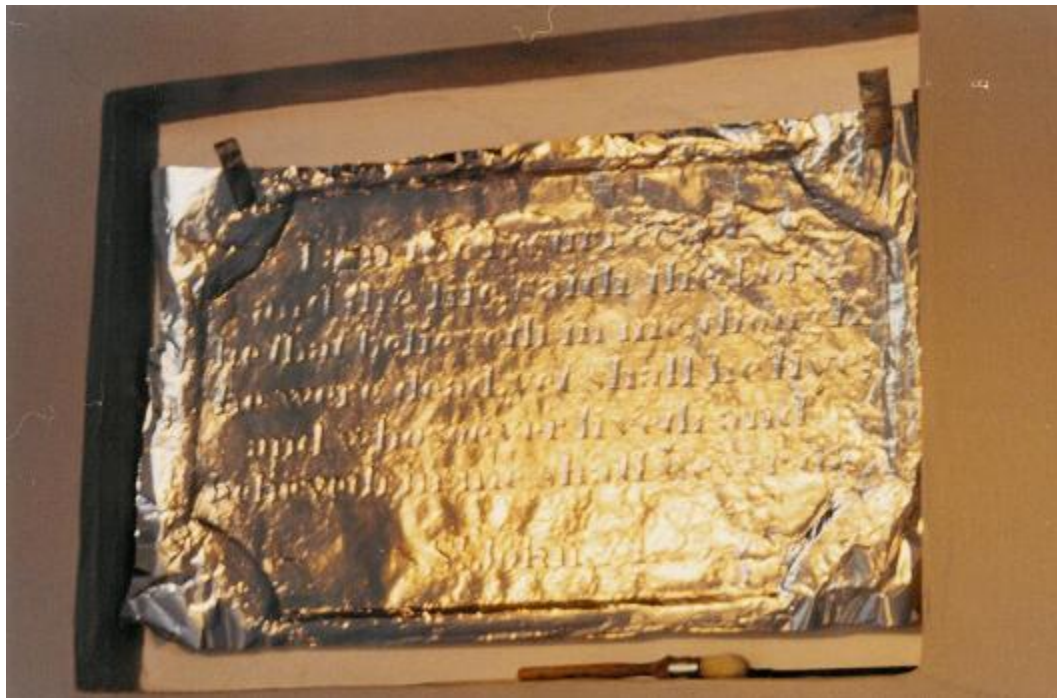 I am the resurrec
and the life, saith the Lord
he that believeth in me, though
he were dead, yet shall he live:
and whosoever liveth and
believeth in me shall never die
S. John